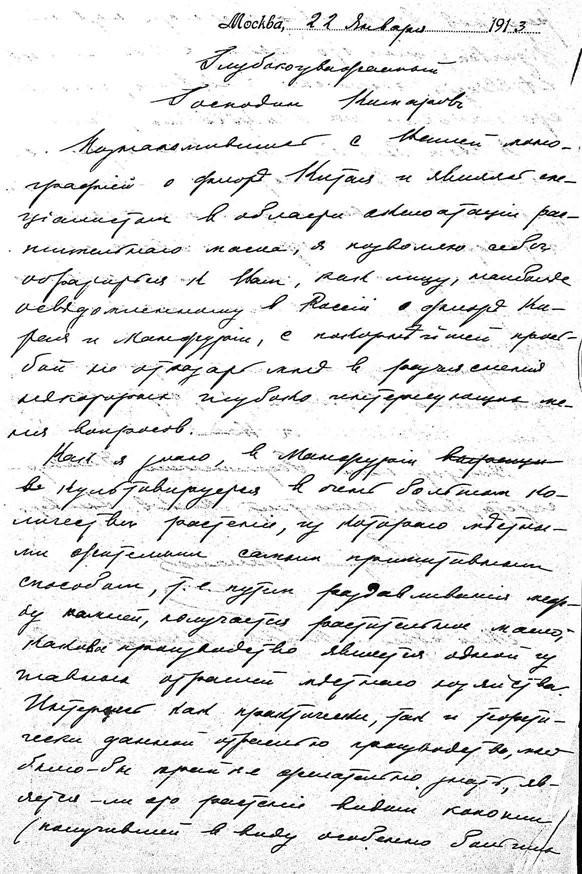 Москва, 22 Января 1913
Глубокоуважаемый
Господин Комаровъ
Познакомившись с Вашей моно-
графией о флорѣ Китая и являясь спе-
циалистом в области эксплоатации рас-
тительного масла, я позволяю себѣ
обратиться к Вам, как лицу, наиболѣе
освѣдомленному в России о флорѣ Ки-
тая и Манчжурии, с покорнѣйшей прось-
бой не отказать мнѣ в разъяснении
некоторых глубоко интересующих ме-
ня вопросов.
Как я знаю, в Манчжурии
культивируется в очень большом ко-
личествѣ растение, из которого мѣстны-
ми жителями самым примитивным
способом, т.е. путем раздавливания меж-
ду камней, получается растительное масло,
каковое производство является одной из
главных отраслей мѣстного хозяйства.
Интересуясь как практически, так и теорети-
чески данной отраслью производства, мнѣ
было-бы крайне желательно знать, яв-
ляется-ли это растение видом конопли
(получившей в виду особенно